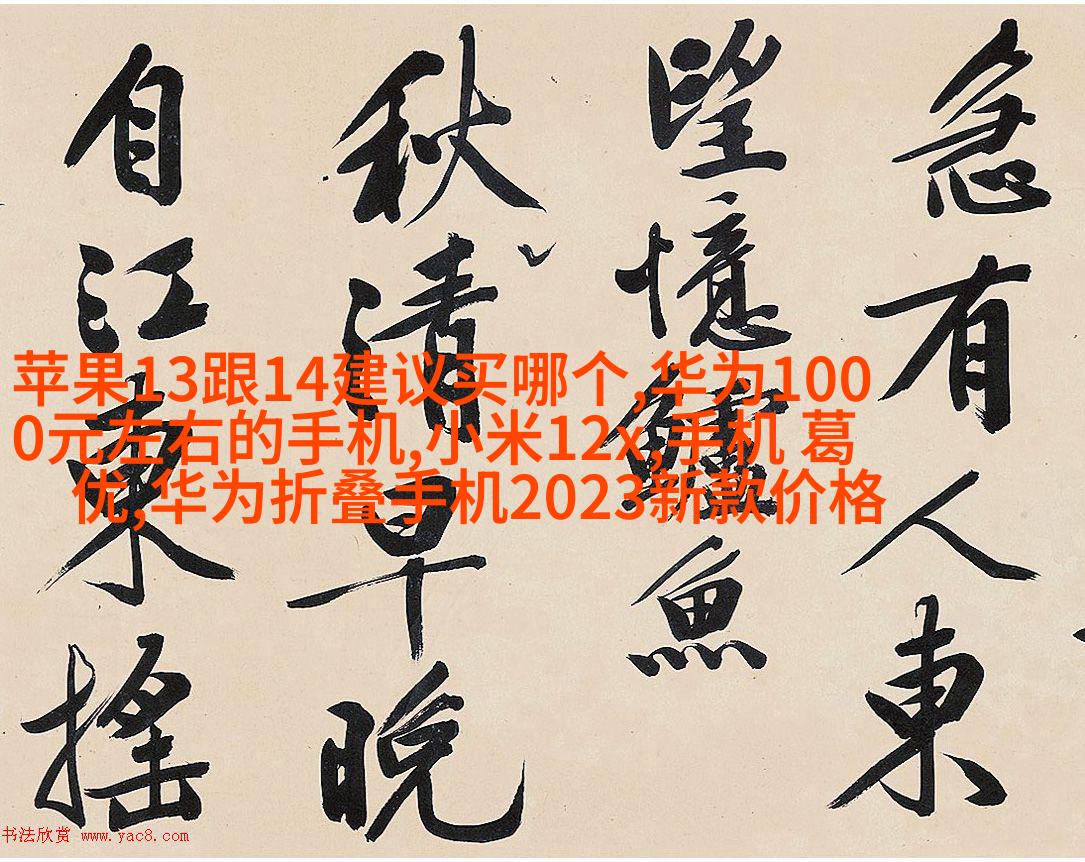 急有人東
望憶鱸魚
秋清早晚
自江東搖
苹果13跟14建议买哪个,华为100
0元左右的手机,小米12x,手机 葛
优,华为折叠手机2023新款价格
书法欣赏 www.yac8.com